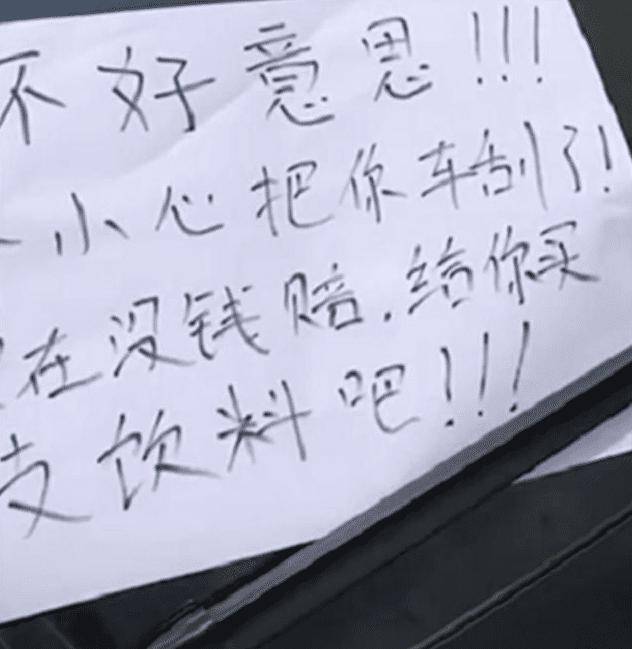 不好意思!!!
小心把你车刮了!
在没钱赔.给你买
支饮料吧!!!